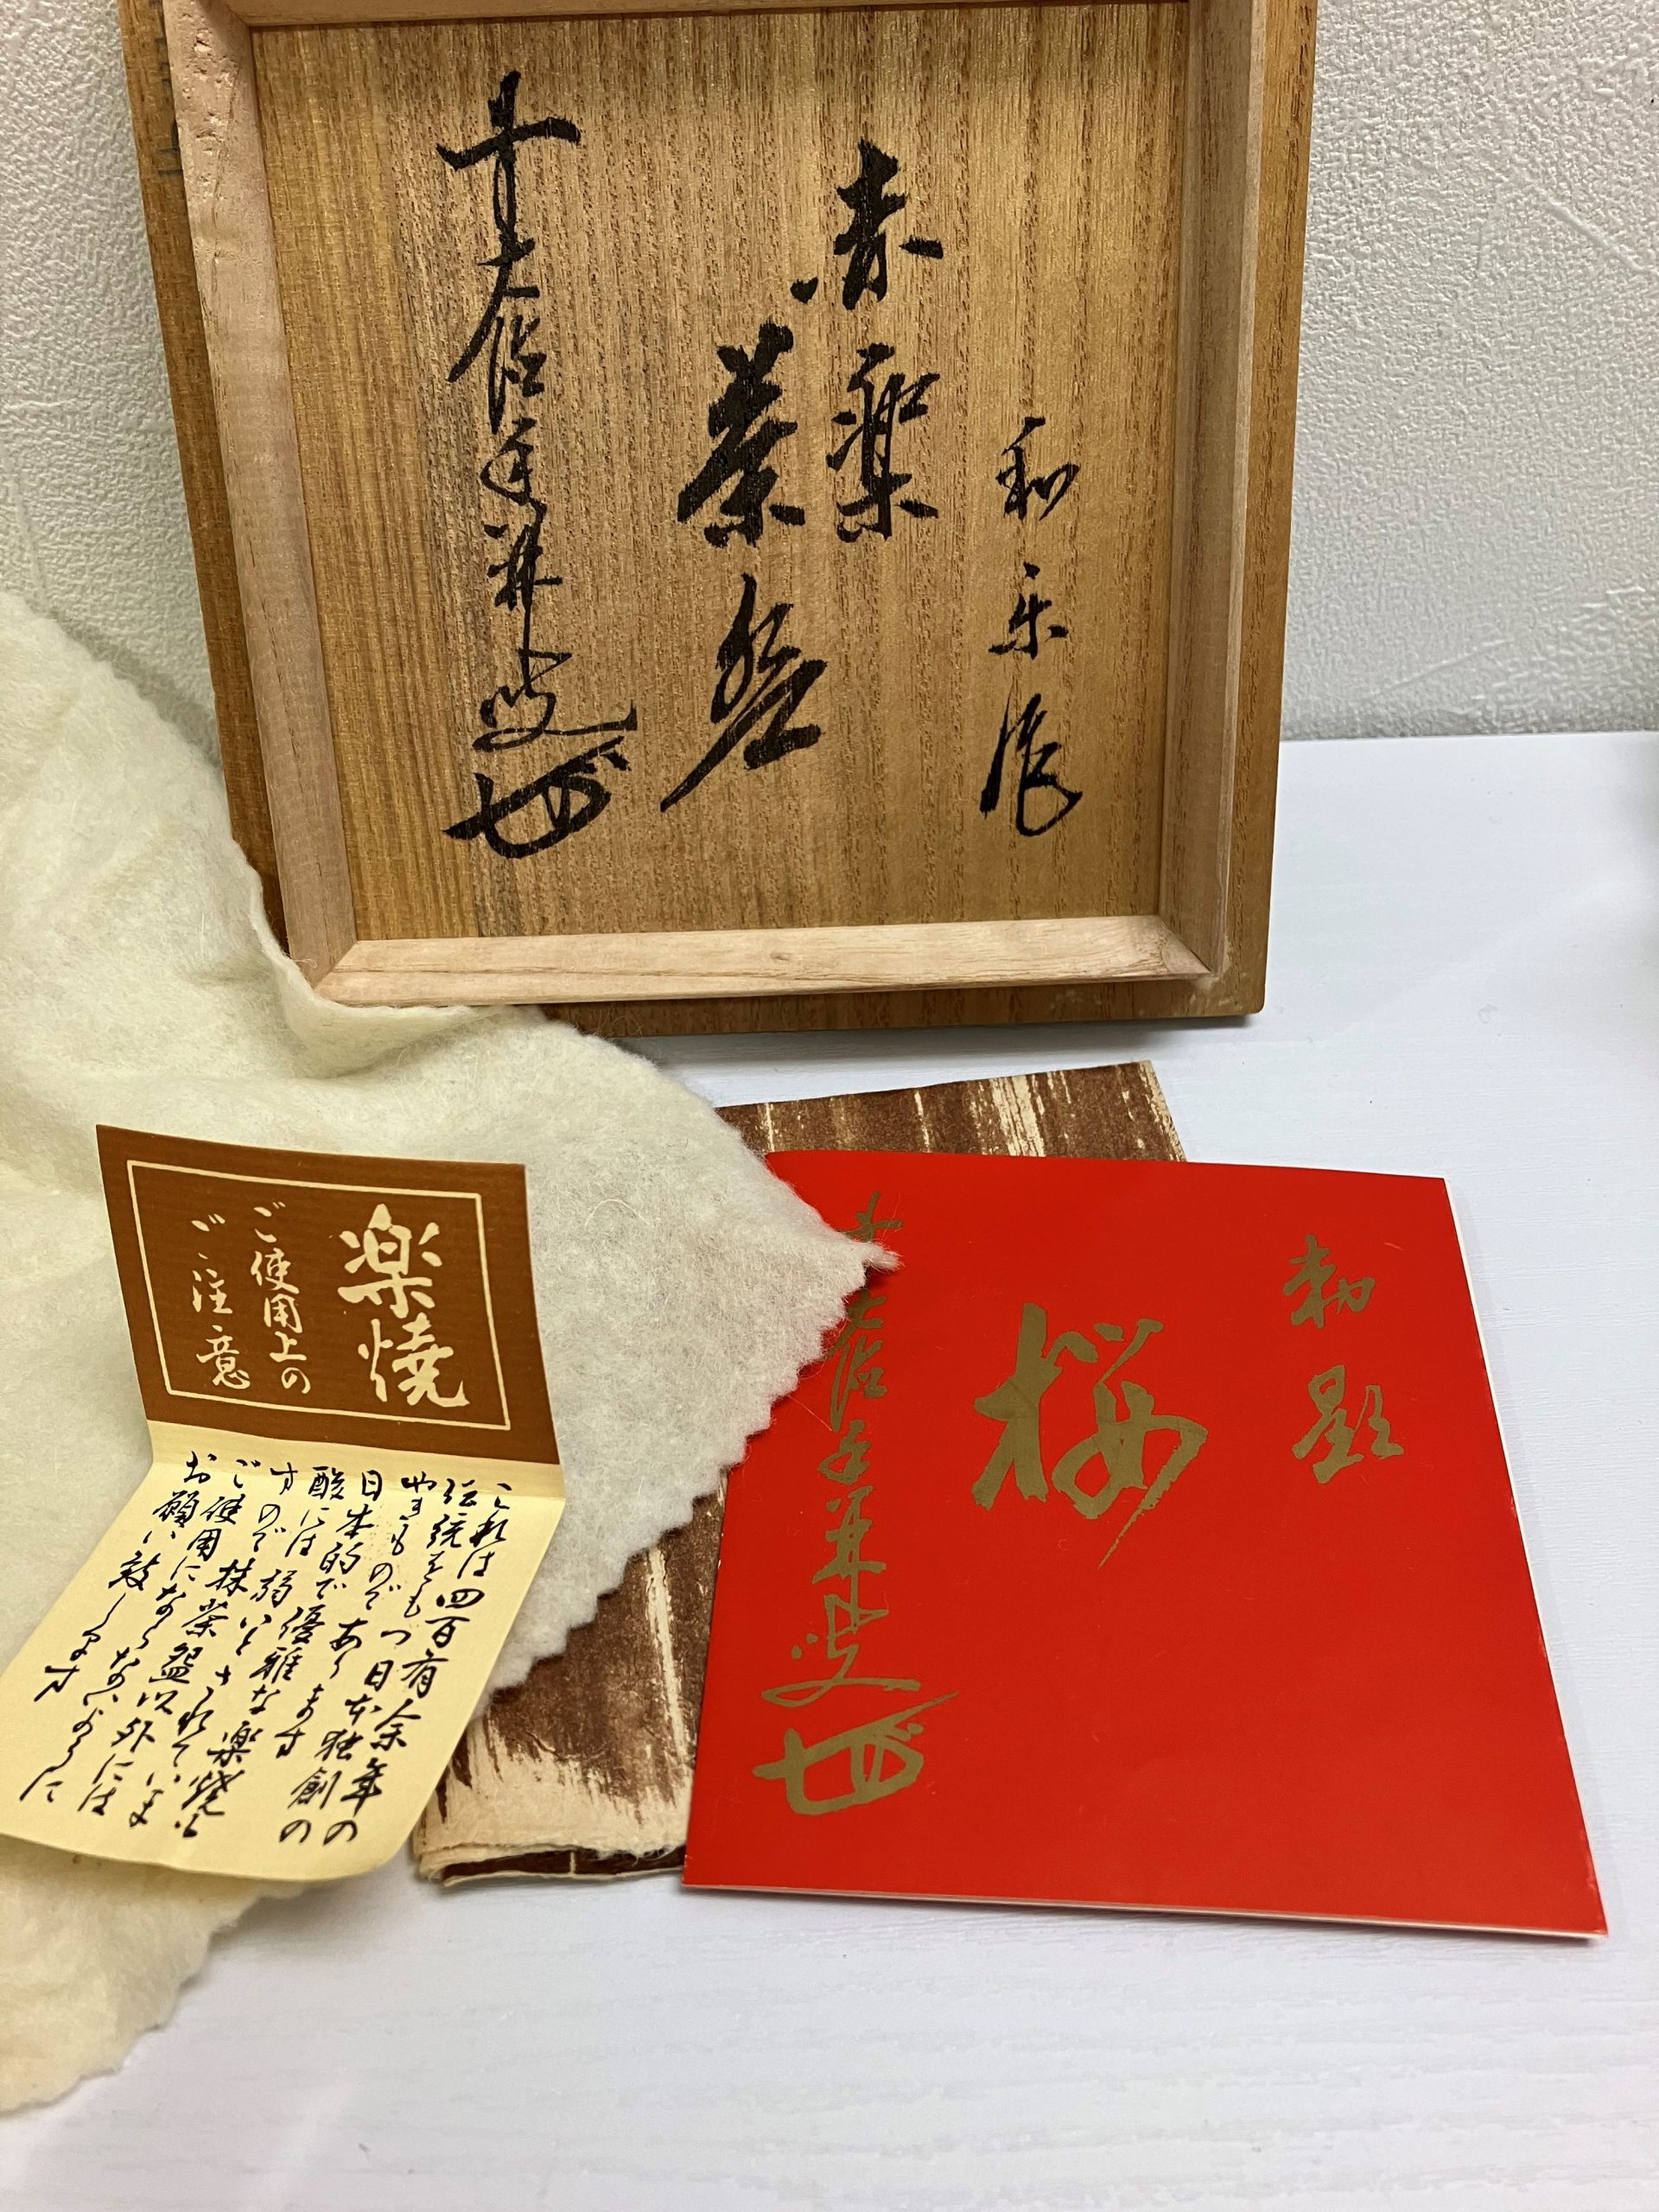 和楽作
赤楽
茶盌
楽焼
ご使用上の
ご注意
これは四百有余年の
伝統をもつ日本独創の
やきものであります
日本的で優雅な楽焼も
酸には弱いとされていま
すので抹茶盌以外には
ご使用にならないように
お願い致します
勅題
桜